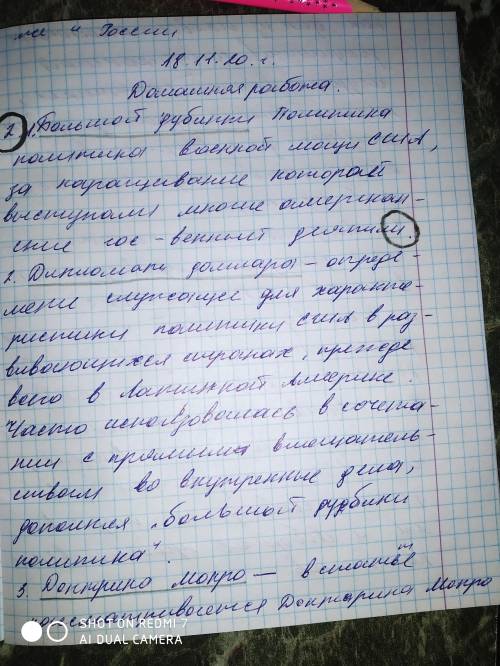 же и России
18.11.20.г.
Домашняя работа.
2. 1. Большой дубинки Политика
политика военной мощи США,
за наращивание которой
выступали многие американ-
ские гос-венный деятели.
2. Дипломати доллара - опреде-
мени служащее для характе-
ристики политики США в раз-
вивающихся странах, прежде
всего в Латинской Америке.
Часто использовалась в сочета-
нии с прямыми вмешатель-
ством во внутренние дела,
дополняя "большой дубинки
политика".
3. Доктрина Монро - в статье
рассматривается Доктарина Монро
SHOT ON REDMI 7
AI DUAL CAMERA